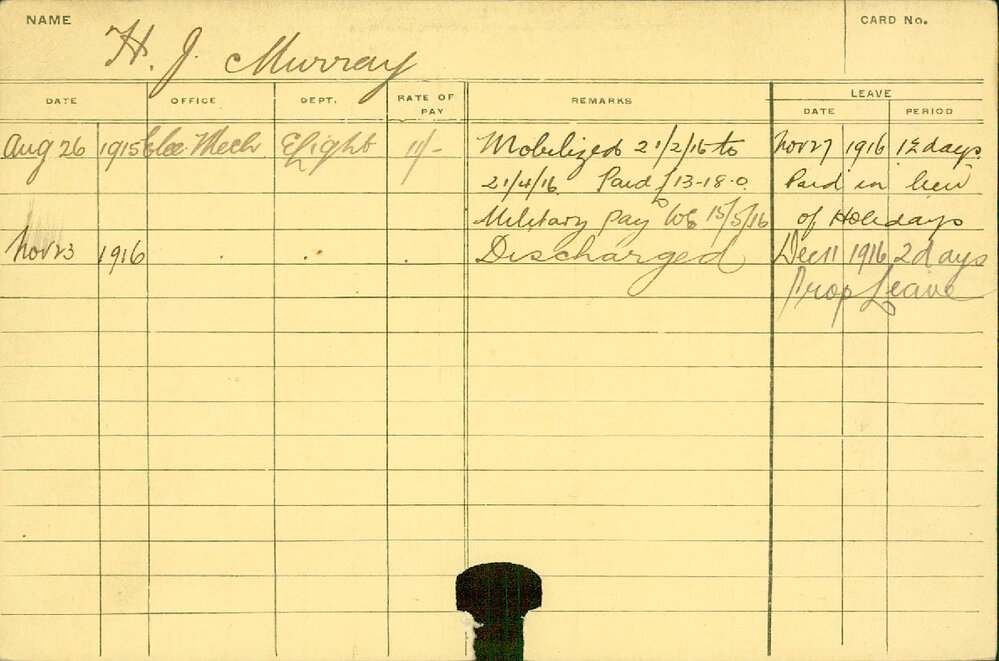 NAME H. J. Murray CARD No.
DATE OFFICE DEPT. RATE OF PAY REMARKS LEAVE
DATE PERIOD
Aug 26 1915 Elec. Mech E Light 11/- Mobilized 21/2/16 to Nov 27 1916 12 days
21/4/16 Paid £13-18-0 Paid in lieu
Military Pay WE 15/5/16 of Holidays
Nov 23 1916 Discharged Dec 11 1916 2 days
Prop Leave